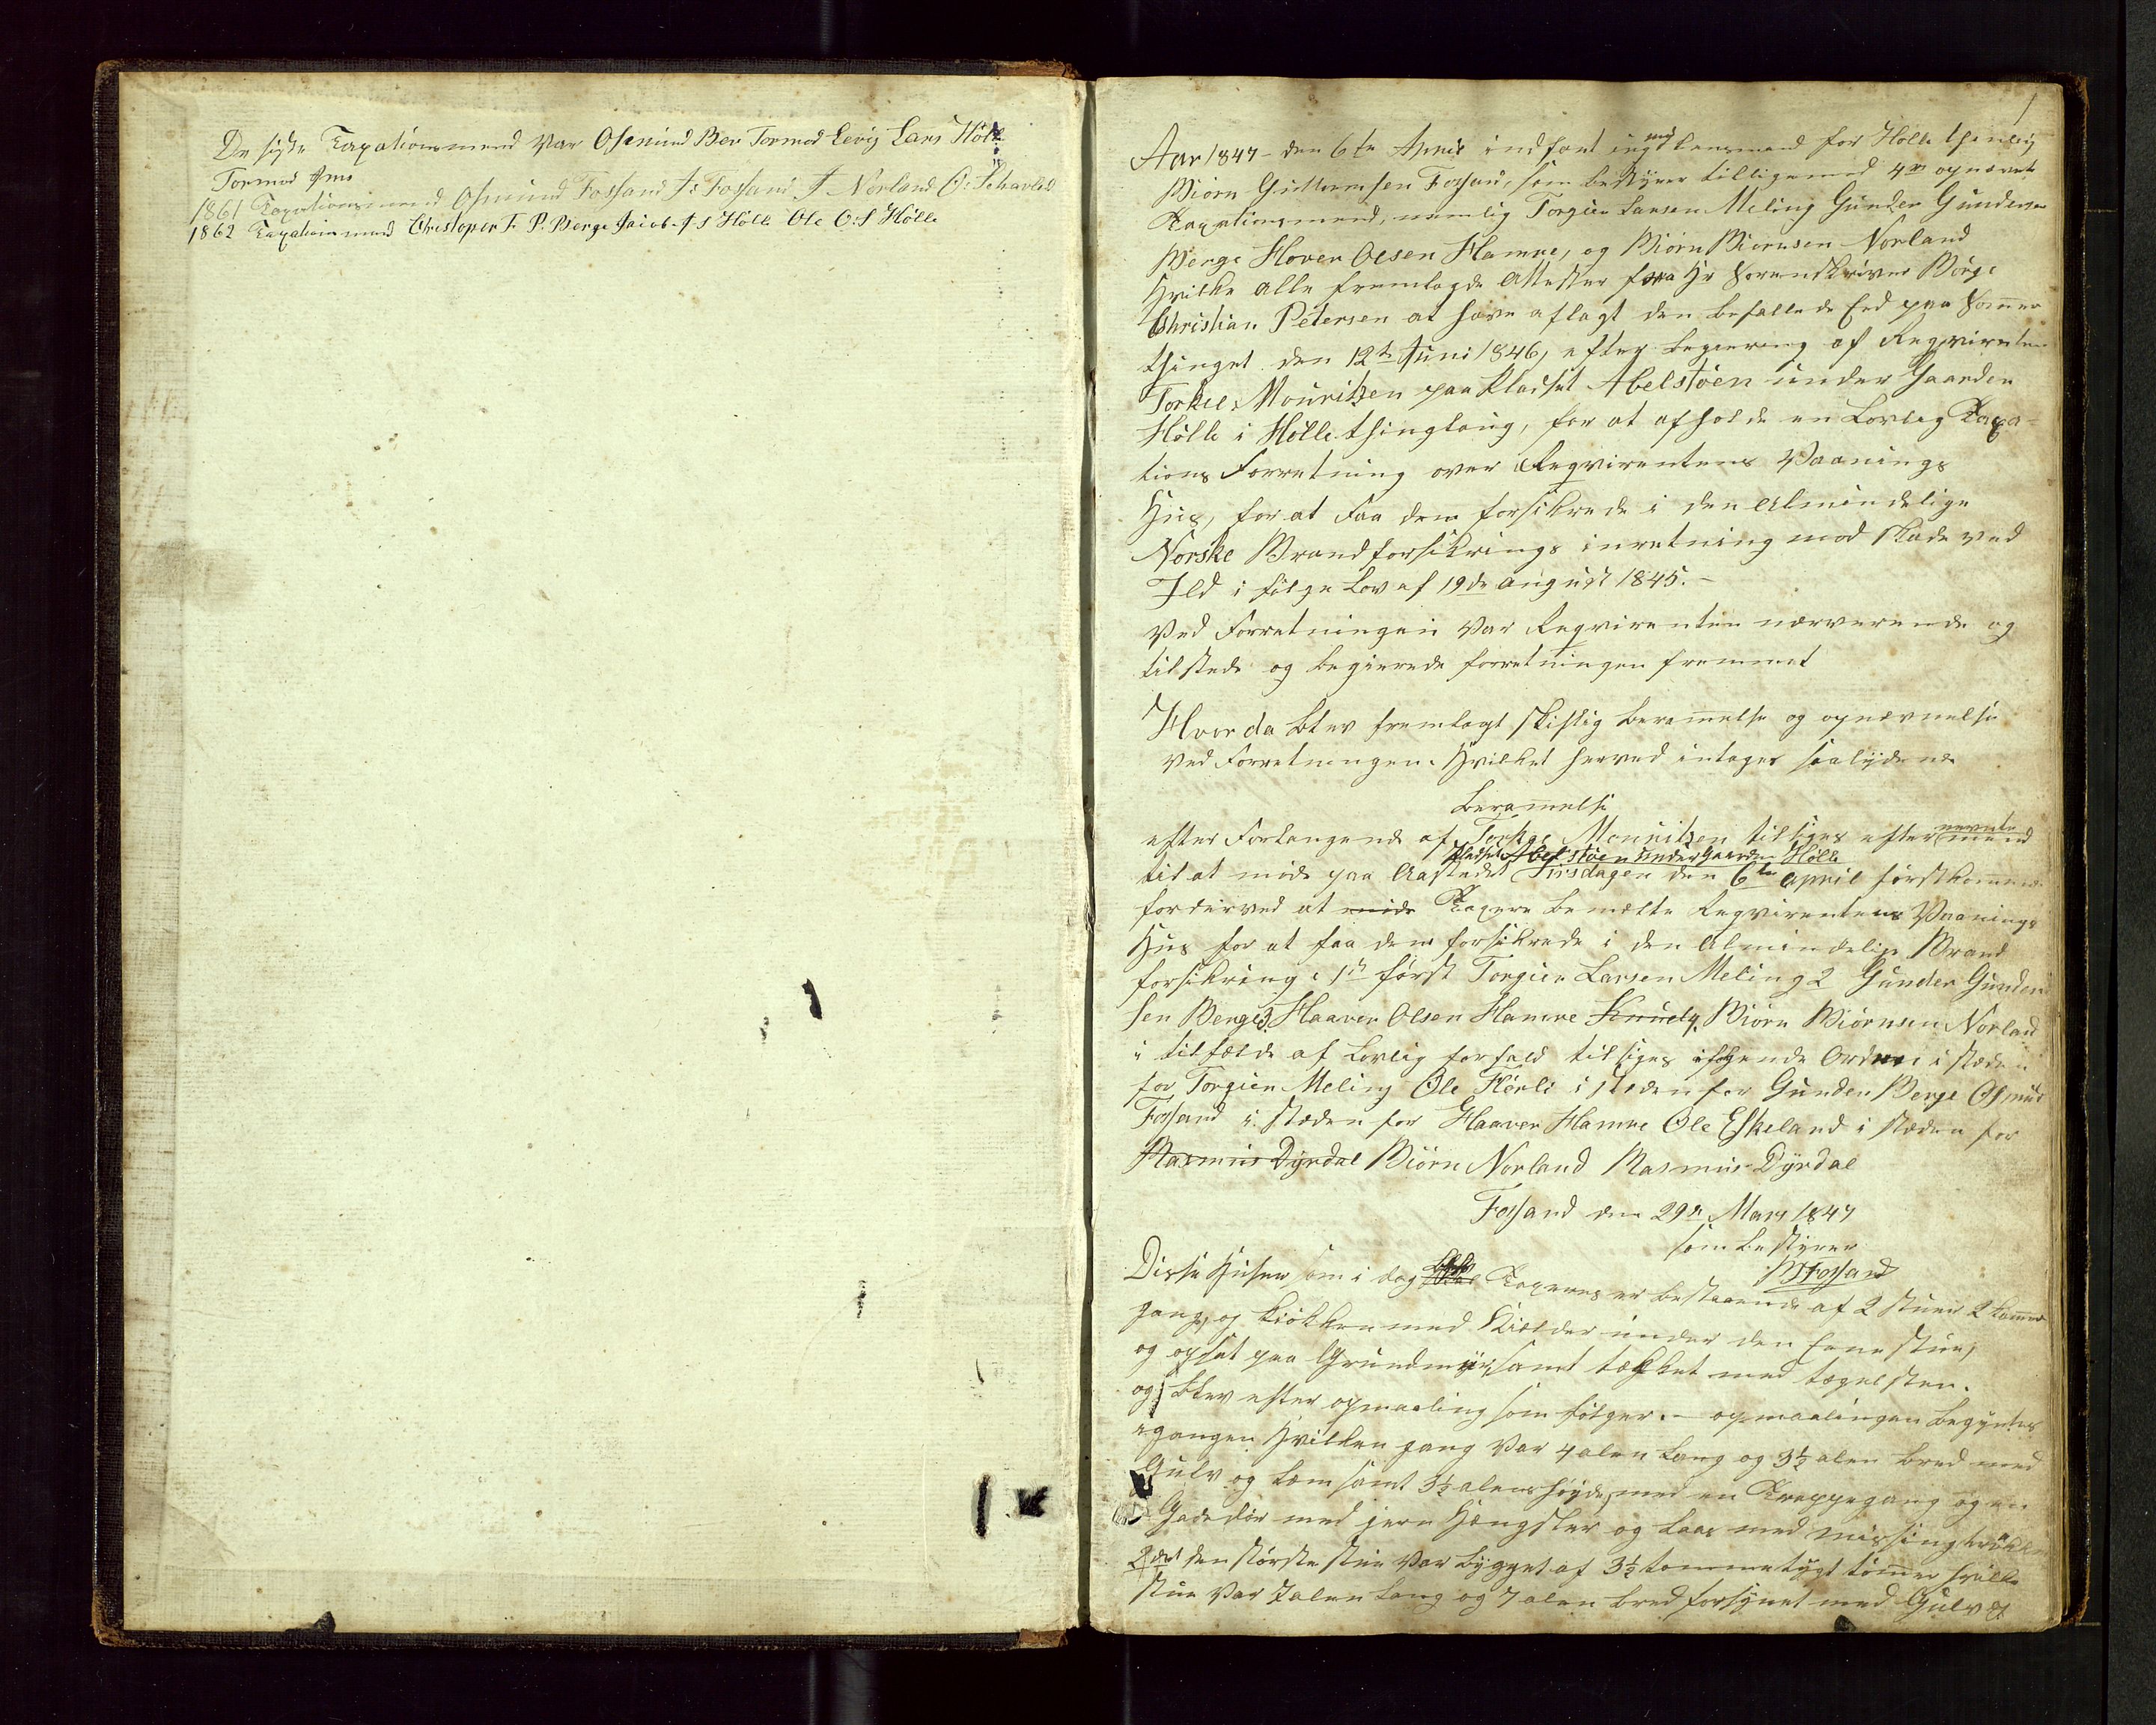 De siste Taxationsmend Var Osmund Ber Tormod Levig Lars Hölle
Tormod Ims
1861 Taxationsmend Osmund Fossand J: Fossand J Norland O: Schavlid
1862 Taxations mend Christoper F. P. Berge Jacob J S Hölle Ole O: S Hölle
1
Aar 1847 - den 6te April indfant sig Lensmand for Hölle thinlaug
Biörn Guttormsen Fossan, som bestÿrer tilligemed 4re opnævnte
Taxationsmend, nemlig Torgier Larsen Meling Gunder Gundersen
Berge Hover Olsen Hamre, og Biörn Biörnsen Norland
Hvilke alle fremlagde Attester fra Hr Sorenskriver Börge
Christian Petersen at have aflagt den befallede Eed paa Somer
thinget den 12te Juni 1846, efter begiering af Reqvirenten
Torkel Mouritzen paa Pladset Abelstöen under Gaarden
Hölle i Hölle thinglaug, for at afholde en Lovlig Taxa-
tions Forretning over Reqvirentens Vaanings
Hus, for at faa dem forsikrede i den Almindelige
Norske Brandforsikrings inretning mod skade ved
Ild i fölge Lov af 19de August 1845. -
Ved Forretningen Var Reqvirenten nærverende og
tilstede og begierede forretningen fremmet
Hvor da blev fremlagt skriftlig beramelse og opnævnelse
ved Forretningen. Hvilket herved intages saalÿdende
Beramelse
efter Forlangende af Torkel Mouritzen tilsiges efternevnte mend
til at möde paa Aastedet Pladset Abelstöen under Gaarden Hölle Tirsdagen den 6te April förstkommende
for derved at möde Taxere bemelte Reqvirentens Vaanings
Hus for at faa dem forsikrede i den Almindelige Brand
forsikring: 1st först Torgier Larsen Meling 2 Gunder Gunder
sen Berge 3 Haaver Olsen Hamre Knud 4 Biörn Biörnsen Norland
i tilfælde af Lovlig forfald tilsiges ifölgende Orden i steden
for Torgier Meling Ole Flörli i steden for Gunder Berge Osmund
Fossand i steden for Haaver Hamre Ole Eskeland i steden for
Rasmus Dÿrdal Biörn Norland Rasmus Dÿrdal
Fossand den 29de Mars 1847
som bestÿrer
B Fossand
Disse Huser som i dag Taxeres er bestaaende af 2 stuer 2 kamer
gang og kiökken med Kielder under den Ene stue,
og opsat paa Grundmur, samt tækket med tegelsten.
og blev efter opmaaling som fölger. - opmaalingen begÿntes
i gangen Hvilken gang Var 4 alen Lang og 3½ alen bred med
Gulv og Lem samt 3½ alens höÿde, med en Trappegang og en
Gadedör med jern Hængsler og Laas med missing
2det den störste stue Var bÿgget af 3½ tommetÿgt tömer hvilke
stue Var 7 alen Lang og 7 alen bred forsÿnet med Gulv &